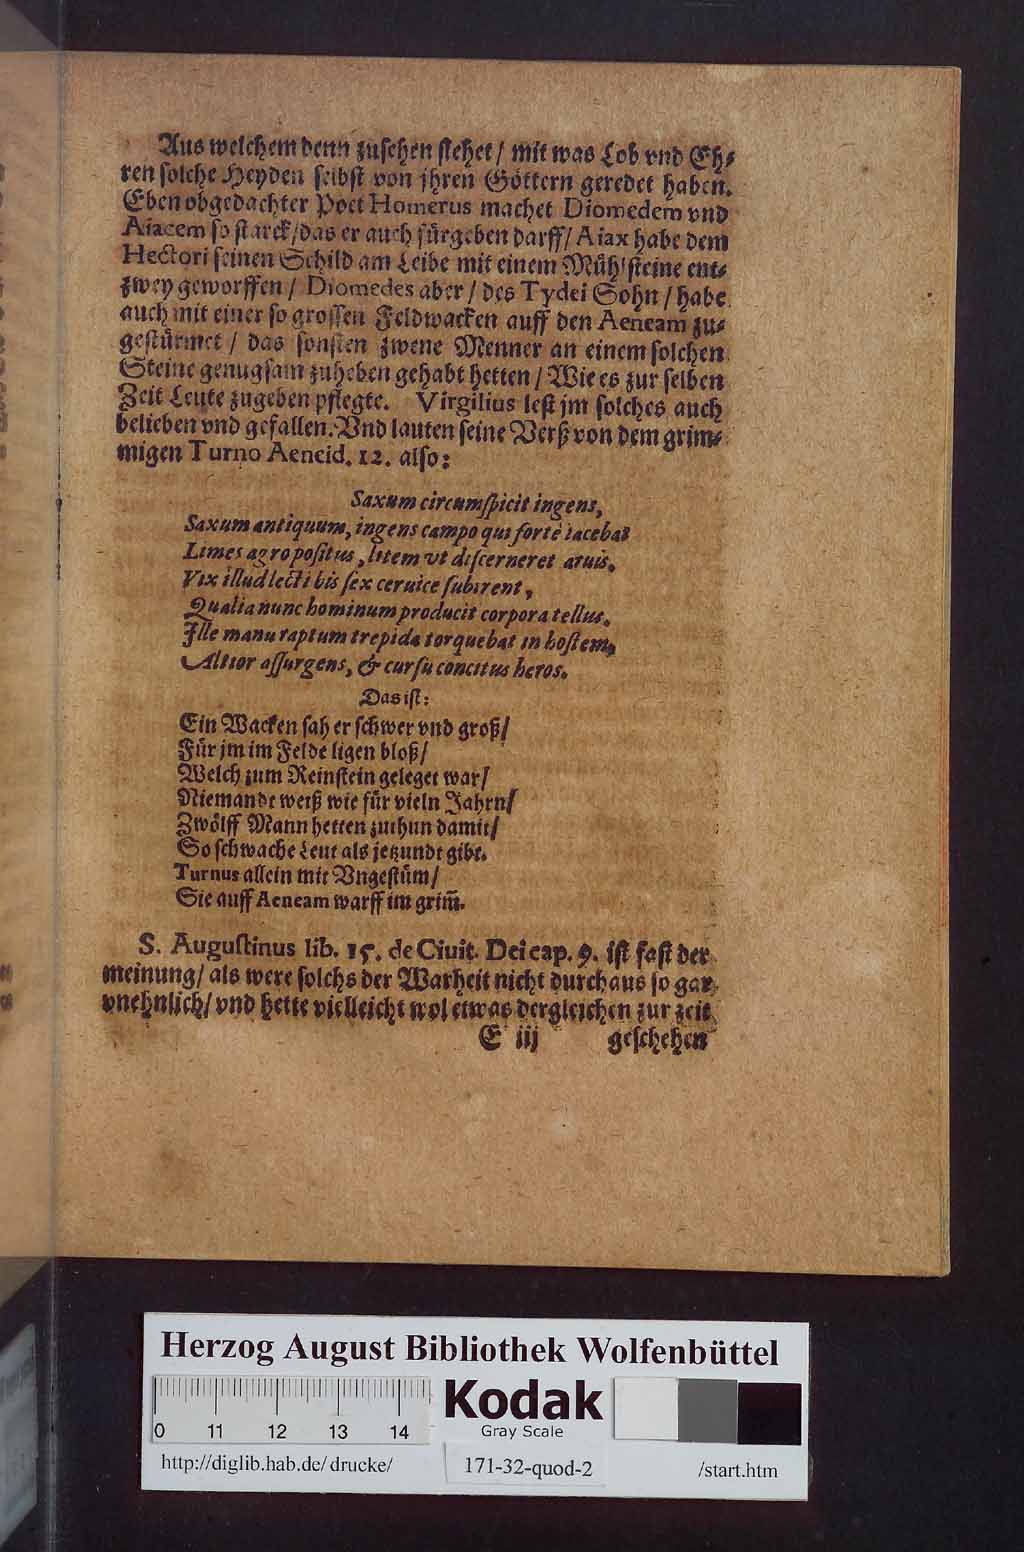 Aus welchem denn zusehen stehet / mit was Lob vnd Eh⸗
ren solche Heyden selbst von jhren Göttern geredet haben.
Eben obgedachter Poet Homerus machet Diomedem vnd
Aiacem so starck / das er auch fürgeben darff / Aiax habe dem
Hectori seinen Schild am Leibe mit einem Mühlsteine ent⸗
zwey geworffen / Diomedes aber / des Tydei Sohn / habe
auch mit einer so grossen Feldwacken auff den Aeneam zu⸗
gestürmet / das sonsten zwene Menner an einem solchen
Steine genugsam zuheben gehabt hetten / Wie es zur selben
Zeit Leute zugeben pflegte. Virgilius lest jm solches auch
belieben vnd gefallen. Vnd lauten seine Verß von dem grim⸗
migen Turno Aeneid. 12. also:
Saxum circumspicit ingens,
Saxum antiquum, ingens campo qui fortè iacebat
Limes agro positus, litem vt discerneret aruis.
Vix illud lecti bis sex ceruice subirent,
Qualia nunc hominum producit corpora tellus.
Ille manu raptum trepida torquebat in hostem,
Altior assurgens, & cursu concitus heros.
Das ist:
Ein Wacken sah er schwer vnd groß /
Für jm im Felde ligen bloß /
Welch zum Reinstein geleget war /
Niemandt weiß wie für vieln Jahrn /
Zwölff Mann hetten zuthun damit /
So schwache Leut als jetzundt gibt.
Turnus allein mit Vngestüm /
Sie auff Aeneam warff im grim̃.
S. Augustinus lib. 15. de Ciuit. Dei cap. 9. ist fast der
meinung / als were solchs der Warheit nicht durchaus so gar
vnehnlich / vnd hette vielleicht wol etwas dergleichen zur zeit
E iij geschehen
Herzog August Bibliothek Wolfenbüttel
Kodak
Gray Scale
0 11 12 13 14
http://diglib.hab.de/drucke/ 171-32-quod-2 /start.htm